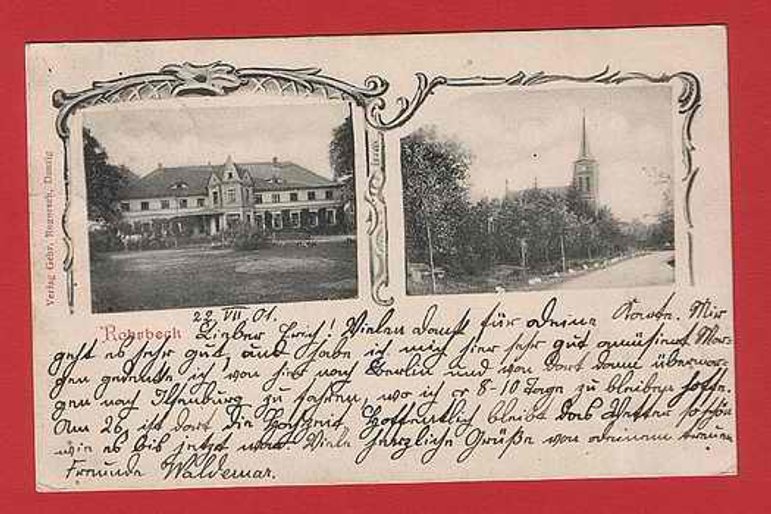 Verlag Gebr. Rogorsch, Danzig
Rohrbeck 22. VII. 01.
Lieber Erich! Vielen Dank für deine Karte. Mir
geht es sehr gut, auch habe ich mich hier sehr gut amüsiert. Mor-
gen gedenke ich von hier nach Berlin und von dort dann übermor-
gen nach Ilsenburg zu fahren, wo ich cr 8-10 Tage zu bleiben hoffe.
Am 26. ist dort die Hochzeit. Hoffentlich bleibt das Wetter so schön
wie es bis jetzt war. Viele herzliche Grüße von deinem treuen
Freunde Waldemar.